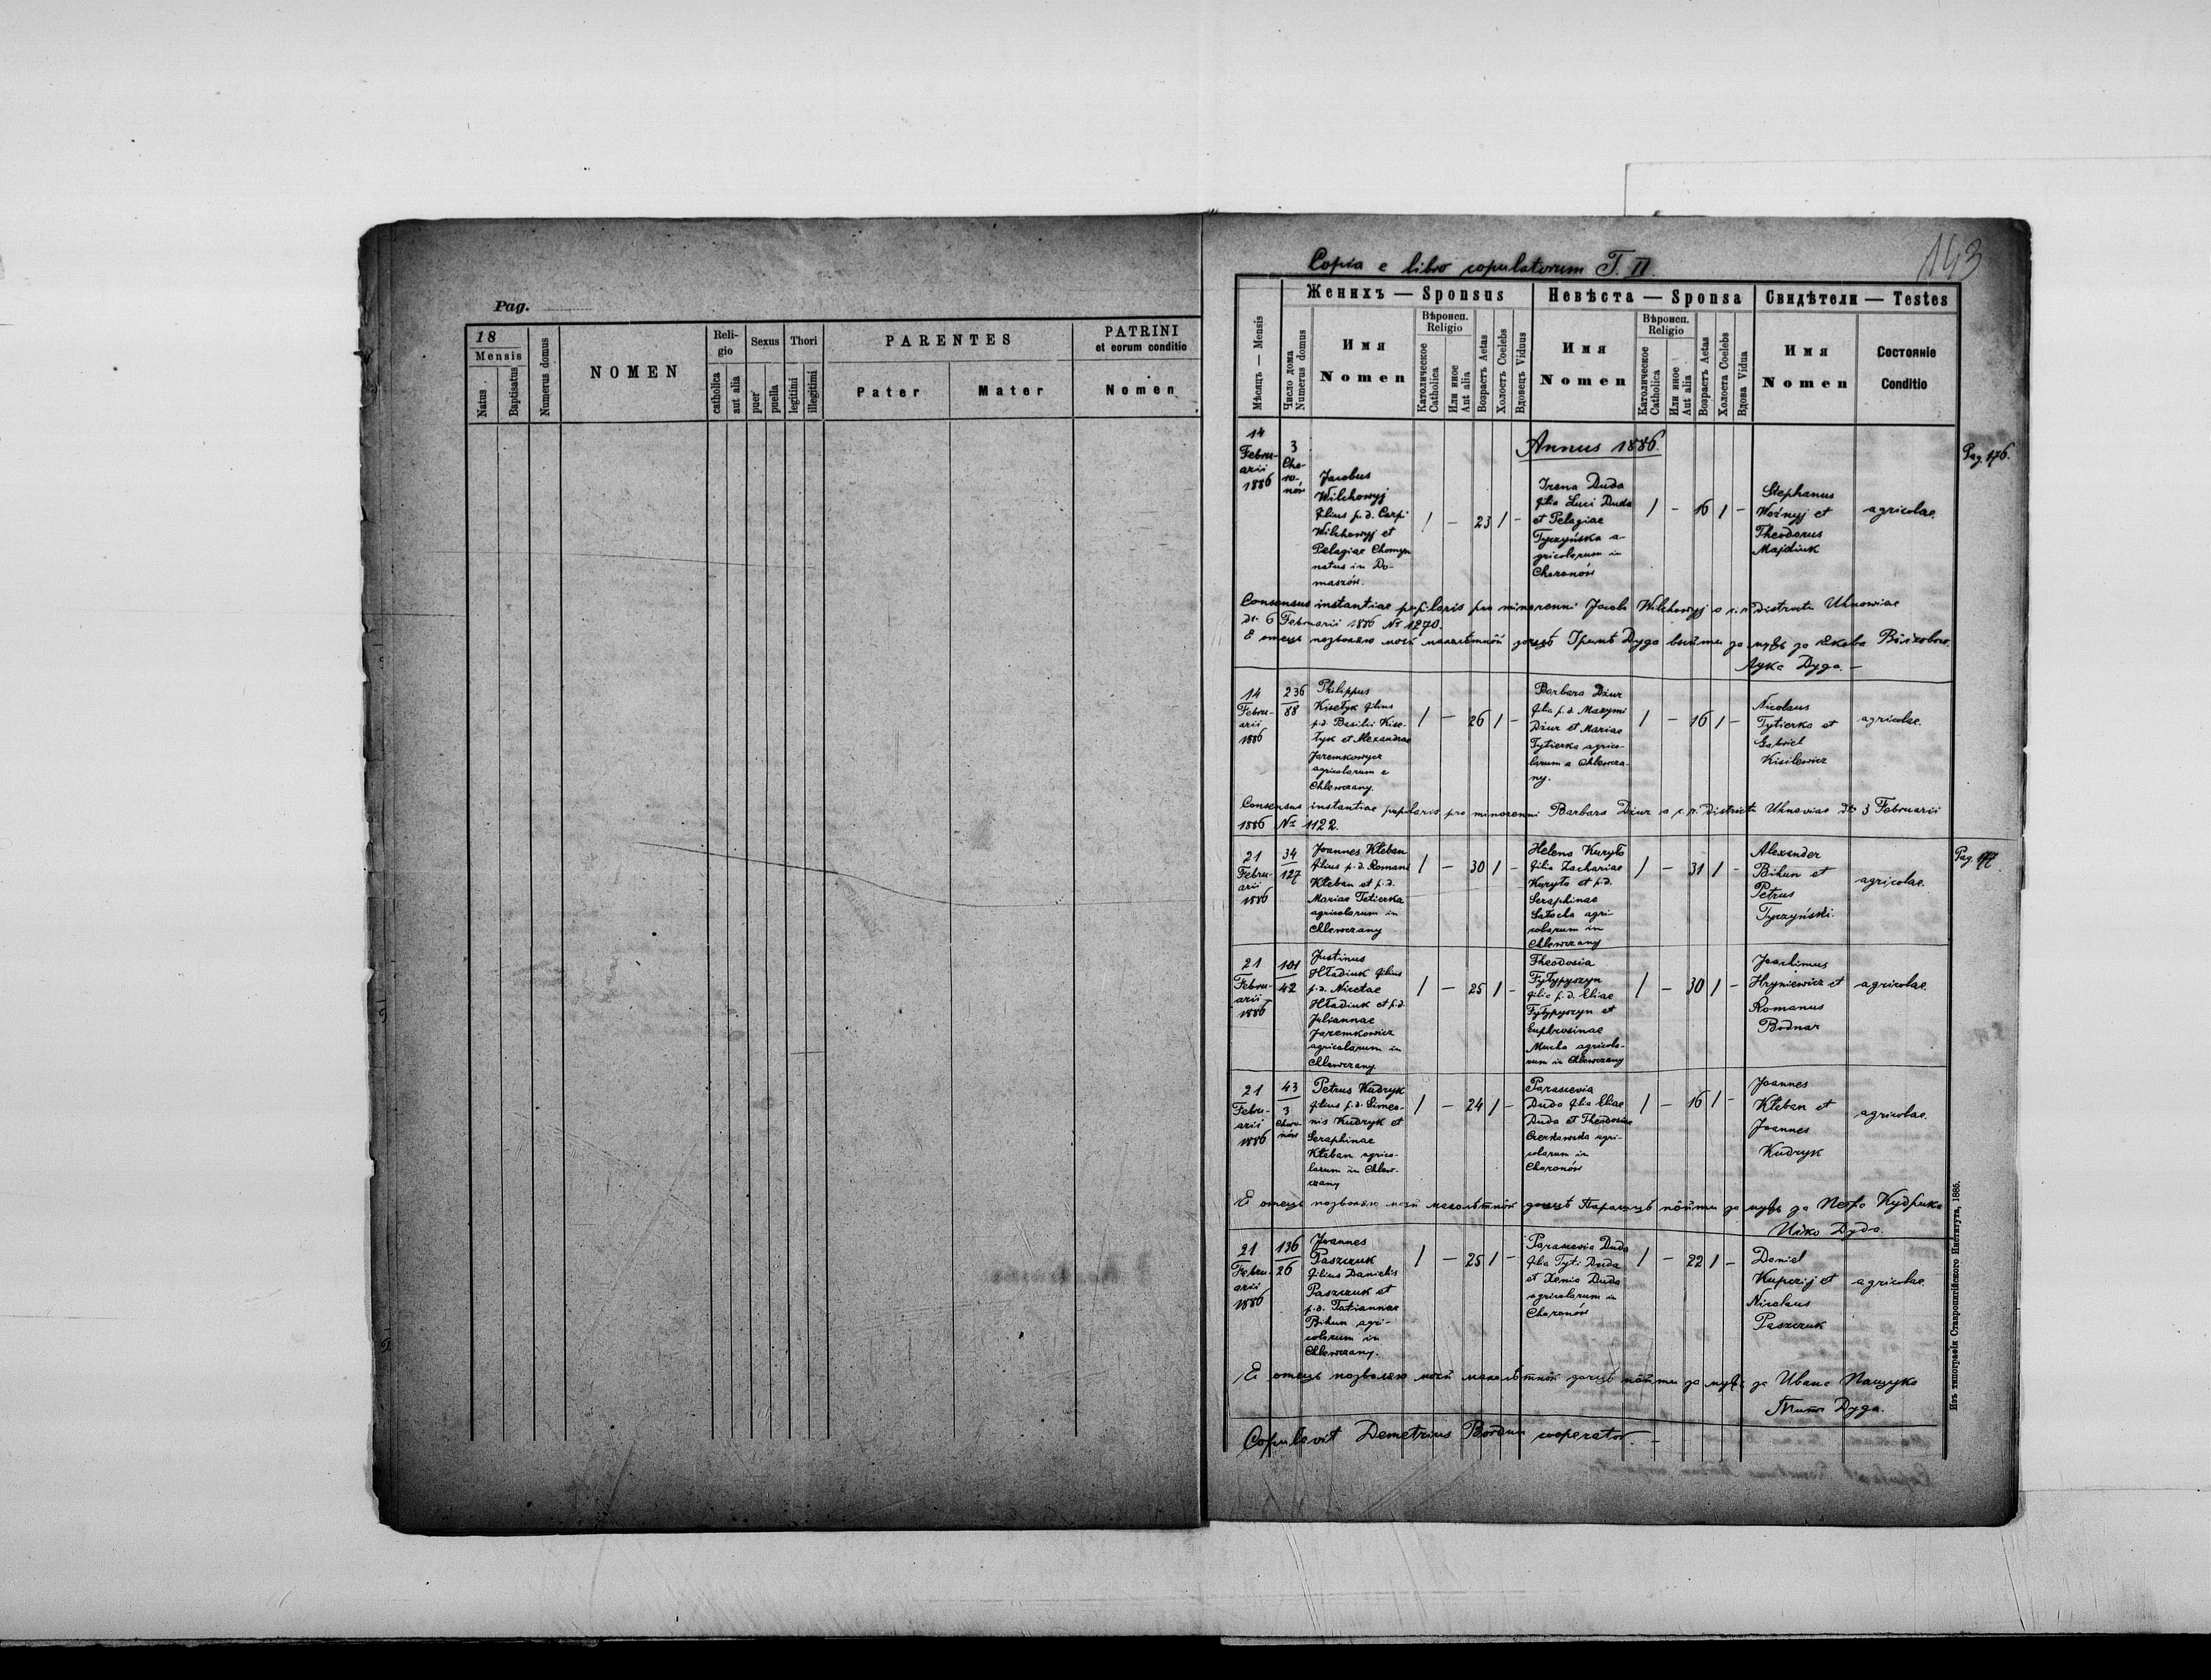 Pag.
18
Mensis
Natus
Baptisatus
Numerus domus
NOMEN
Reli-
gio
catholica
aut alia
Sexus
puer
puella
Thori
legitimi
illegitimi
PARENTES
Pater
Mater
PATRINI
et eorum conditio
Nomen
Copia e libro copulatorum T. II.
143
Мѣсяць — Mensis
Число дома
Numerus domus
Женихъ — Sponsus
Имя
Nomen
Вѣроисп.
Religio
Католическое
Catholica
Или иное
Aut alia
Возрастъ Aetas
Холостъ Coelebs
Вдовецъ Viduus
Невѣста — Sponsa
Имя
Nomen
Вѣроисп.
Religio
Католическое
Catholica
Или иное
Aut alia
Возрастъ Aetas
Холоста Coelebs
Вдова Vidua
Свидѣтели — Testes
Имя
Nomen
Состояніе
Conditio
Annus 1886.
Pag. 176.
14
Febru-
arii
1886
3
Cho-
ro-
nów
Jacobus
Wilchowyj
filius p. d. Carpi
Wilchowyj et
Pelagiae Chomyn
natus in Do-
maszów.
/ — 23 / -
Irena Duda
filia Luci Duda
et Pelagiae
Tyrzyńska a-
gricolarum in
Choronów
/ - 16 / -
Stephanus
Woźnyj et
Theodorus
Majdiuk
agricolae.
Consensus instantiae pupilaris pro minorenni Jacob Wilchowyj a c. r. districtu Uhnoviae
dt. 6 Februarii 1886 № 1270.
Я отецъ позволяю моєй малолѣтной доцѣ Иринѣ Дуда выйти за мужъ за Якова Вôлхового.
Лука Дуда. —
14
Febru-
arii
1886
236
88
Philippus
Kisełyk filius
p.d. Basilii Kise-
łyk et Alexandrae
Jaremkowycz
agricolarum e
Chlewczany.
/ — 26 / -
Barbara Dziur
filia p. d. Maxymi
Dziur et Mariae
Tytierka agrico-
larum a Chlewcza-
ny.
/ - 16 / -
Nicolaus
Tytierka et
Gabriel
Kisilewicz
agricolae.
Consensus instantiae pupilaris pro minorenni Barbara Dziur a c. r. districtu Uhnoviae dt. 3 Februarii
1886 № 1122.
21
Febru-
arii
1886
34
127
Joannes Kłeban
filius p. d. Romani
Kłeban et p.d.
Mariae Tetierka
agricolarum in
Chlewczany
/ — 30 / -
Helena Kuryło
filia Zachariae
Kuryło et p.d.
Seraphinae
Sałocha agri-
colarum in
Chlewczany
/ — 31 / -
Alexander
Bihun et
Petrus
Tyrzyński.
agricolae.
Pag. 177
21
Febru-
arii
1886
101
42
Justinus
Hładiuk filius
p.d. Nicetae
Hładiuk et p.d.
Juliannae
Jaremkowicz
agricolarum in
Chlewczany
/ — 25 / -
Theodosia
Fyłypyszyn
filia p. d. Eliae
Fyłypyszyn et
Euphrosinae
Mucha agricola-
rum in Chlewczany
/ — 30 / -
Joachimus
Hryniewicz et
Romanus
Bodnar
agricolae.
21
Febru-
arii
1886
43
3
Choro-
nów
Petrus Kudryk
filius p.d. Simeo-
nis Kudryk et
Seraphinae
Kłeban agrico-
larum in Chlew-
czany
/ — 24 / -
Parascevia
Duda filia Eliae
Duda et Theodosiae
Czerkawska agri-
colarum in
Choronów
/ — 16 / -
Joannes
Kłeban et
Joannes
Kudryk
agricolae.
Я отецъ позволяю моєй малолѣтной доцѣ Парасцѣ пôйти за мужъ за Петра Кудрика
Илько Дуда.
21
Febru-
arii
1886
136
26
Joannes
Paszczuk
filius Danielis
Paszczuk et
p.d. Tatiannae
Bihun agri-
colarum in
Chlewczany.
/ — 25 / -
Parascevia Duda
filia Tyti Duda
et Xenia Duda
agricolarum in
Choronów
/ — 22 / -
Daniel
Kupczij et
Nicolaus
Paszczuk
agricolae.
Я отецъ позволяю моєй малолѣтной доцѣ пôйти за мужъ за Ивана Пащука
Тит Дуда.
Copulavit Demetrius Bordun cooperator. —
Изъ типографіи Ставропигійского Института, 1885.